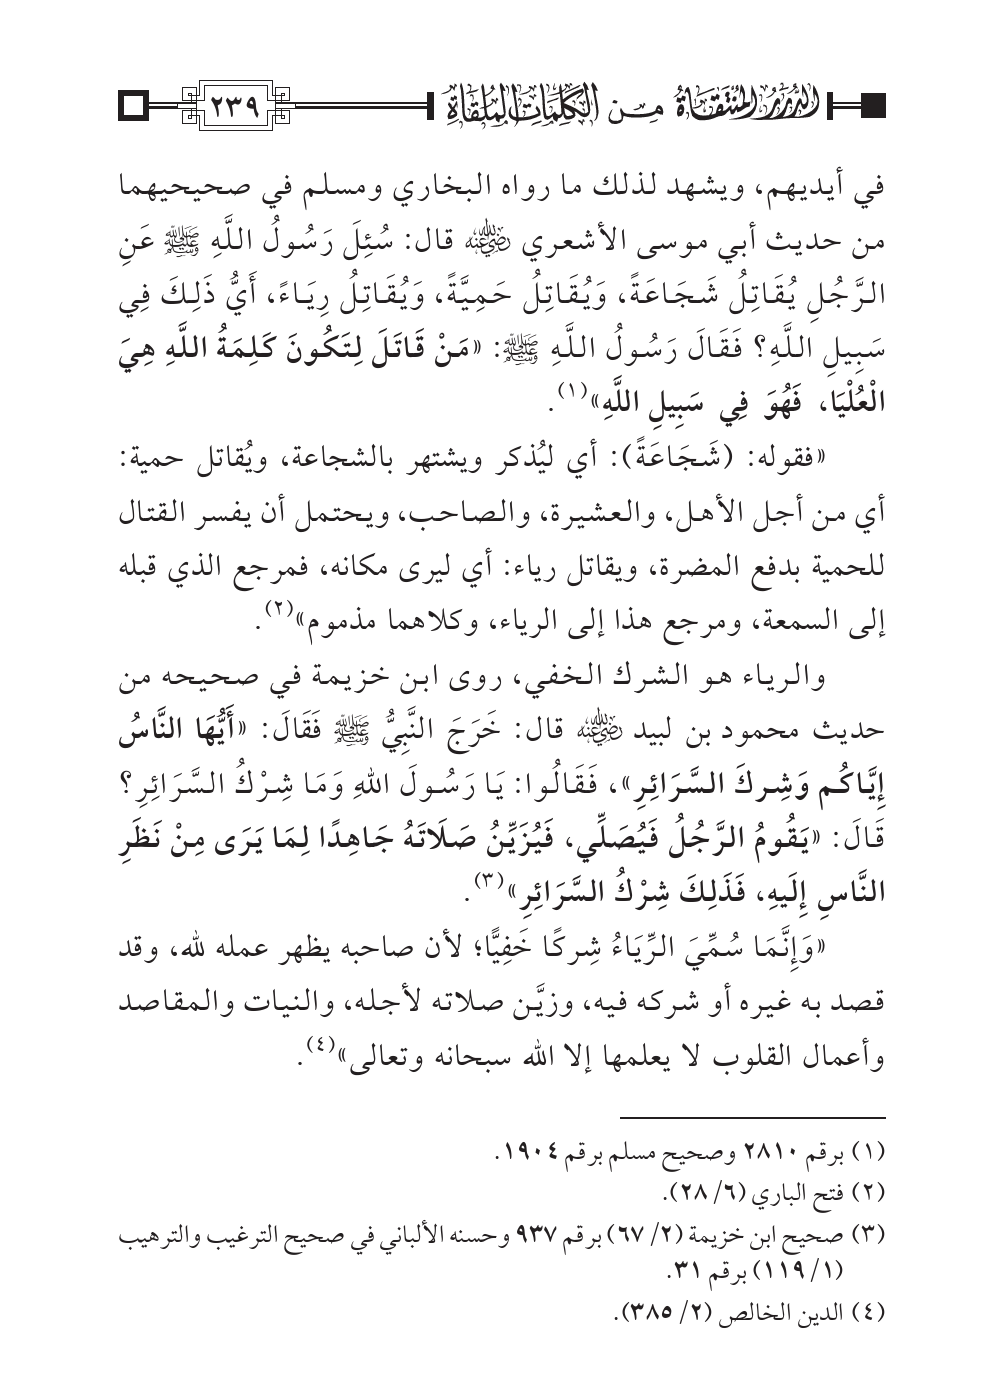 الدُّرَرُ المُنْتَقَاةُ مِـن الكَلِمَاتِ المُلْقَاةِ
٢٣٩
في أيديهم، ويشهد لذلك ما رواه البخاري ومسلم في صحيحيهما
من حديث أبي موسى الأشعري رضي الله عنه قال: سُئِلَ رَسُولُ اللَّهِ ﷺ عَنِ
الرَّجُلِ يُقَاتِلُ شَجَاعَةً، وَيُقَاتِلُ حَمِيَّةً، وَيُقَاتِلُ رِيَاءً، أَيُّ ذَلِكَ فِي
سَبِيلِ اللَّهِ؟ فَقَالَ رَسُولُ اللَّهِ ﷺ: «مَنْ قَاتَلَ لِتَكُونَ كَلِمَةُ اللَّهِ هِيَ
الْعُلْيَا، فَهُوَ فِي سَبِيلِ اللَّهِ»(١).
«فقوله: (شَجَاعَةً): أي ليُذكر ويشتهر بالشجاعة، ويُقاتل حمية:
أي من أجل الأهل، والعشيرة، والصاحب، ويحتمل أن يفسر القتال
للحمية بدفع المضرة، ويقاتل رياء: أي ليرى مكانه، فمرجع الذي قبله
إلى السمعة، ومرجع هذا إلى الرياء، وكلاهما مذموم»(٢).
والرياء هو الشرك الخفي، روى ابن خزيمة في صحيحه من
حديث محمود بن لبيد رضي الله عنه قال: خَرَجَ النَّبِيُّ ﷺ فَقَالَ: «أَيُّهَا النَّاسُ
إِيَّاكُم وَشِركَ السَّرَائِرِ»، فَقَالُوا: يَا رَسُولَ اللهِ وَمَا شِرْكُ السَّرَائِرِ؟
قَالَ: «يَقُومُ الرَّجُلُ فَيُصَلِّي، فَيُزَيِّنُ صَلَاتَهُ جَاهِدًا لِمَا يَرَى مِنْ نَظَرِ
النَّاسِ إِلَيهِ، فَذَلِكَ شِرْكُ السَّرَائِرِ»(٣).
«وَإِنَّمَا سُمِّيَ الرِّيَاءُ شِركًا خَفِيًّا؛ لأن صاحبه يظهر عمله لله، وقد
قصد به غيره أو شركه فيه، وزيَّن صلاته لأجله، والنيات والمقاصد
وأعمال القلوب لا يعلمها إلا الله سبحانه وتعالى»(٤).
(١) برقم ٢٨١٠ وصحيح مسلم برقم ١٩٠٤.
(٢) فتح الباري (٦/ ٢٨).
(٣) صحيح ابن خزيمة (٢/ ٦٧) برقم ٩٣٧ وحسنه الألباني في صحيح الترغيب والترهيب
(١/ ١١٩) برقم ٣١.
(٤) الدين الخالص (٢/ ٣٨٥).